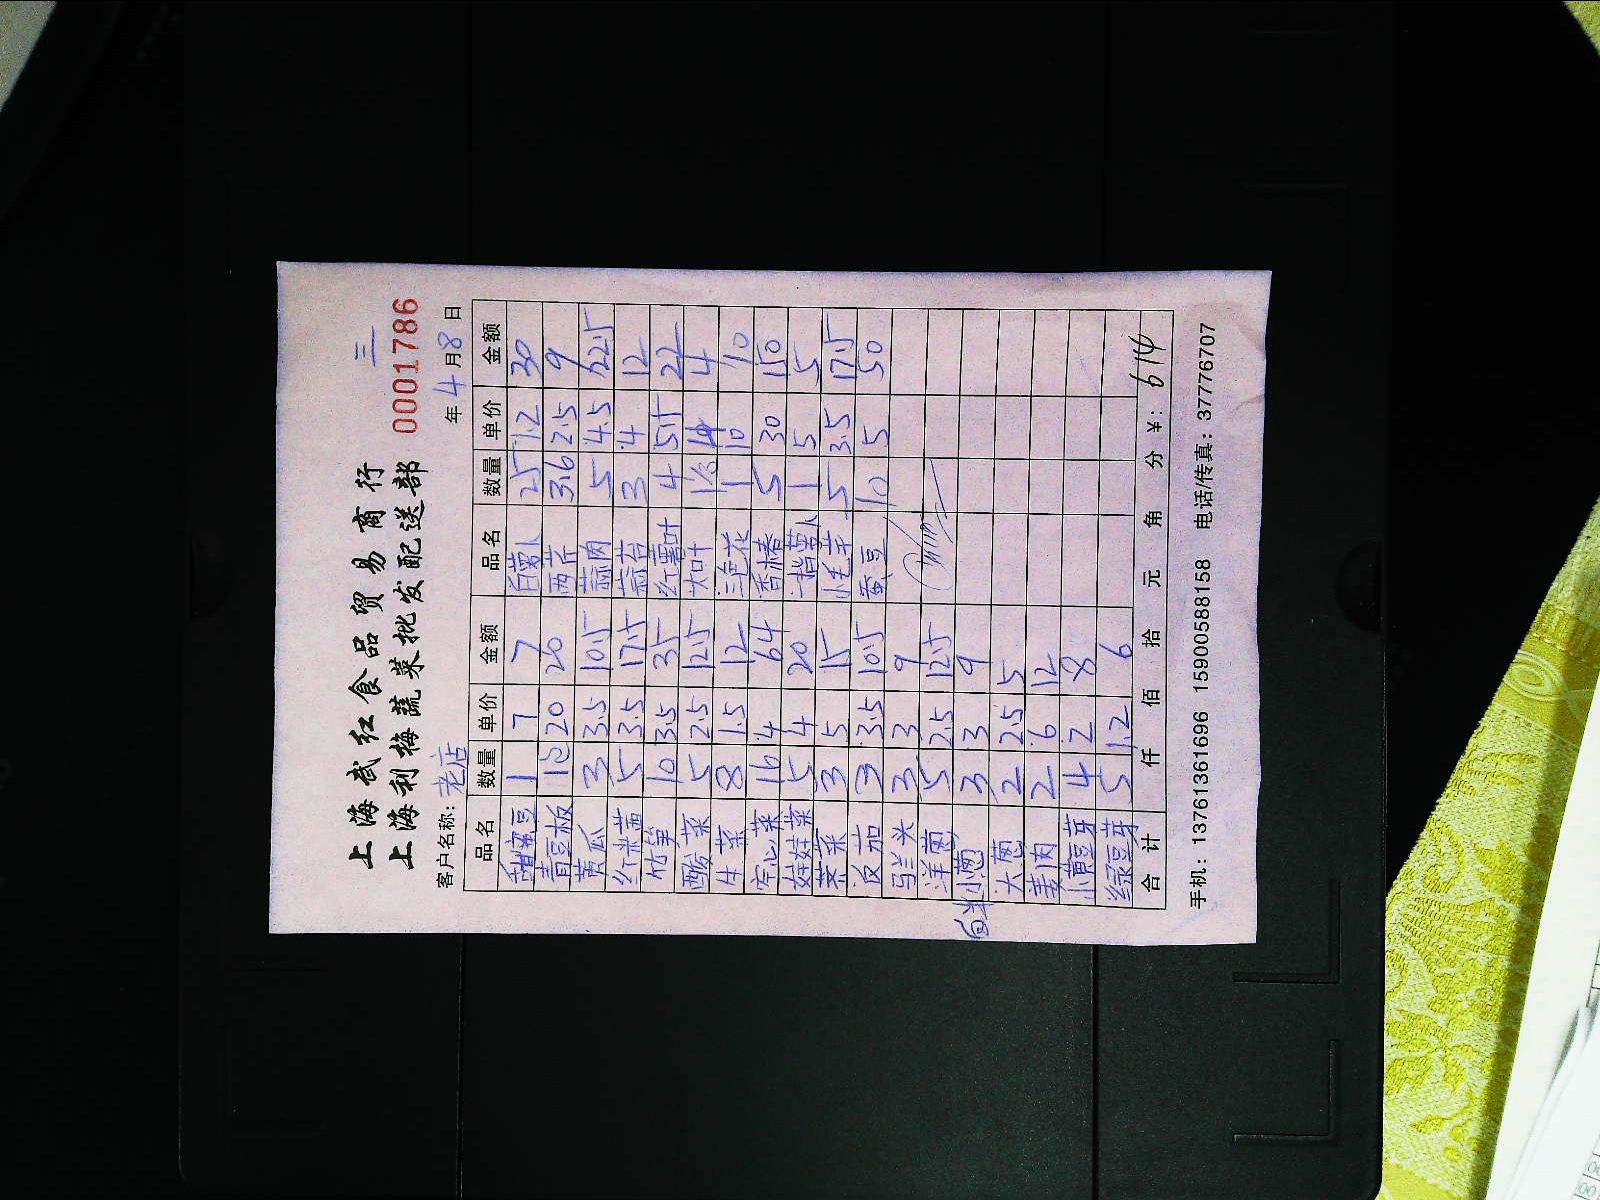 三
上海武红食品贸易商行
上海利梅蔬菜批发配送部
0001786
客户名称: 老店 年 4 月 8 日
品名 数量 单价 金额 品名 数量 单价 金额
甜蜜豆 1 7 7 白萝卜 25 1.2 30
青豆板 1包 20 20 西芹 3.6 2.5 9
黄瓜 3 3.5 10.5 蒜肉 5 4.5 22.5
红米苋 5 3.5 17.5 蒜苔 3 4 12
竹笋 10 3.5 35 红薯叶 4 5.5 22
酸菜 5 2.5 12.5 大叶 4
生菜 8 1.5 12 三色花 1 10 10
空心菜 16 4 64 香椿 5 30 150
娃娃菜 5 4 20 指萝卜 1 5 5
芥菜 3 5 15 小毛芋 5 3.5 17.5
反茄 3 3.5 10.5 蚕豆 10 5 50
马兰头 3 3 9
洋葱 5 2.5 12.5
小葱 3 3 9
大葱 2 2.5 5
姜肉 2 6 12
小黄豆芽 4 2 8
绿豆芽 5 1.2 6
合计 仟 佰 拾 元 角 分 ¥: 614
手机: 13761361696 15900588158 电话/传真: 37776707